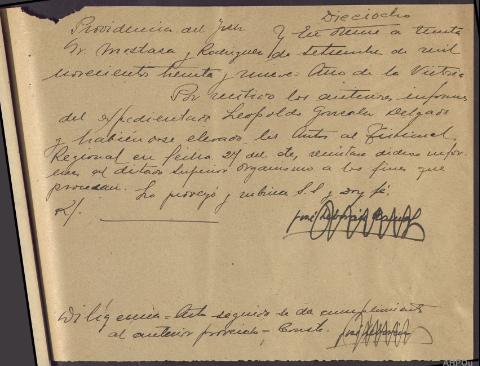 Dieciocho
Providencia del Juez Y En Orense a treinta
Sr. Mostaza y Rodriguez de Setiembre de mil
novecientos treinta y nueve. Año de la Victoria
Por recibido los anteriores informes
del expedientado Leopoldo Gonzalez Delgado
y habiendose elevado los autos al Tribunal
Regional en fecha 27 del cte, remitase dichos infor
mes al citado Superior organismo a los fines que
procedan. Lo proveyó y rubrica S.S. doy fé.
José
Diligencia = Acto seguido se da cumplimiento
al anterior proveido, Consto.
José